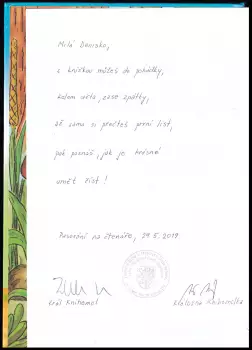 Milá Denisko,
s knížkou můžeš do pohádky,
kolem světa, zase zpátky,
až sama si přečteš první list,
pak poznáš, jak je krásné
umět číst!
Pasování na čtenáře, 29. 5. 2019
Král Knihomol
Královna Knihomolka